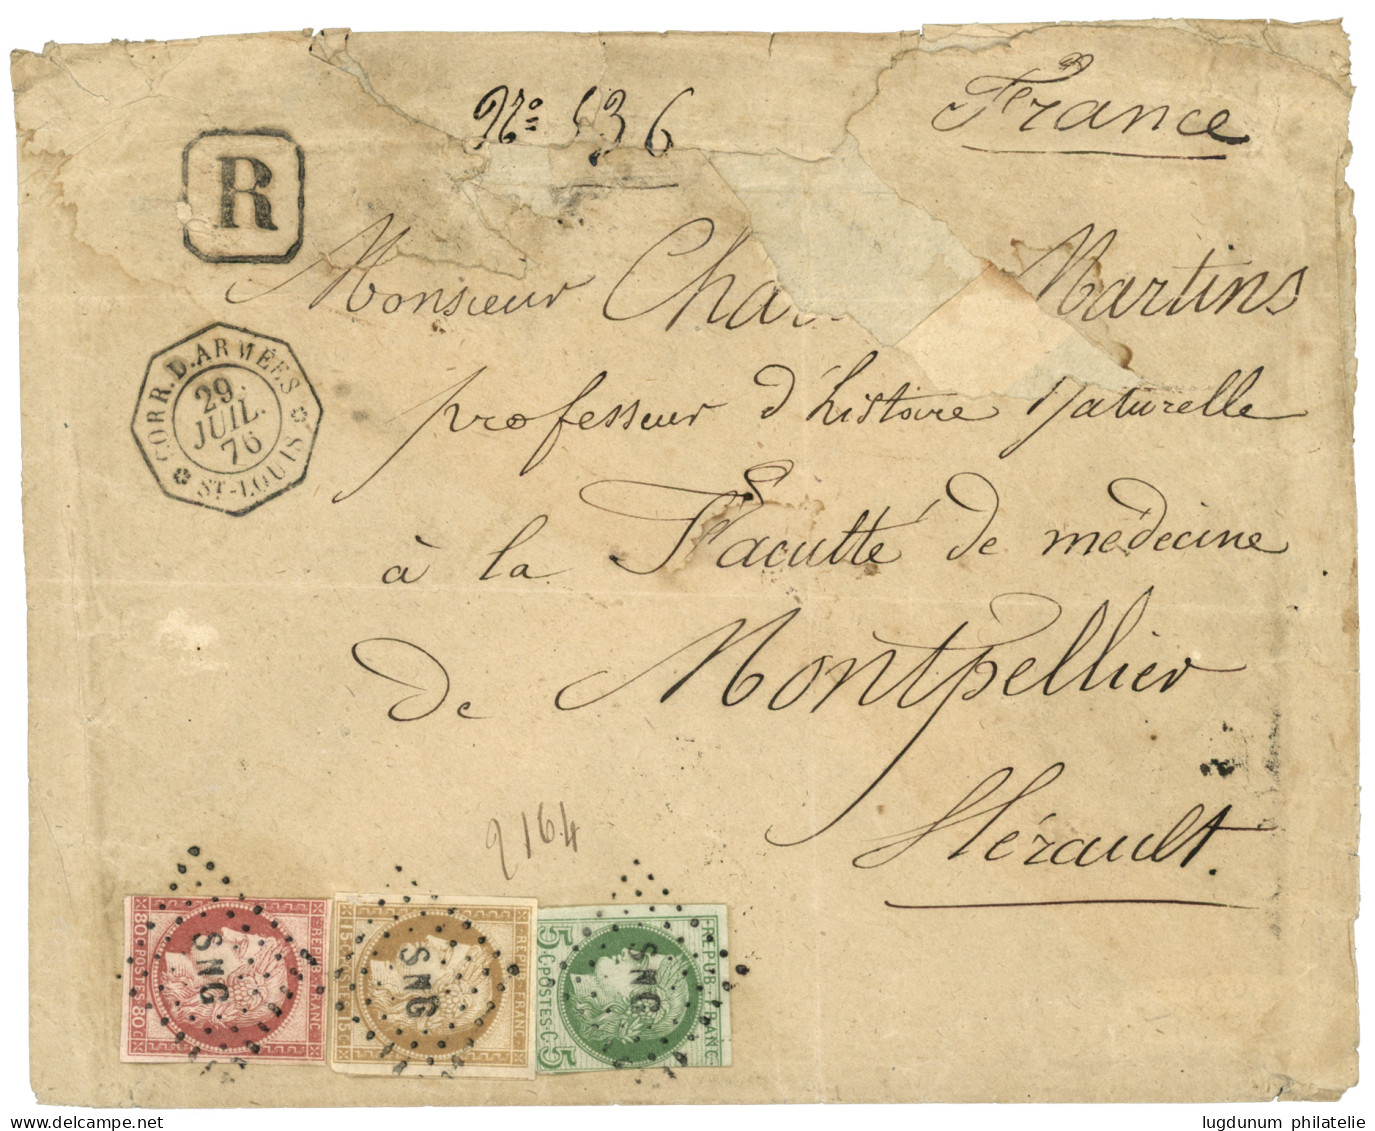 Nº 536
France
R
Monsieur Cha Martins
CORR. D. ARMÉES
29
JUIL.
76
ST-LOUIS
professeur d'histoire Naturelle
à la Faculté de médecine
de Montpellier
Hérault.
2164
80 C. POSTES 80 C
REPUB. FRANC.
SNG
15 C. 15 C
REPUB. FRANC.
SNG
5 C. POSTES. C. 5
REPUB. FRANC.
SNG
lugdunum philatelie